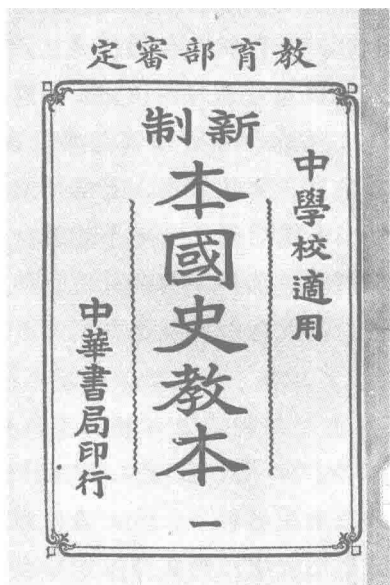 教育部審定
新制
中學校適用
本國史教本
一
中華書局印行